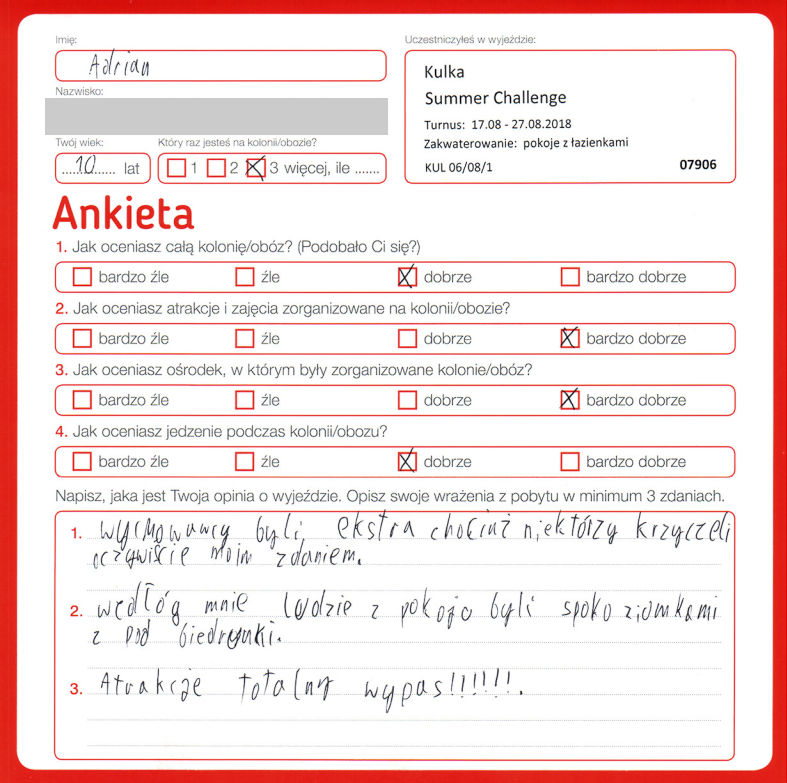 Imię:
Adrian
Uczestniczyłeś w wyjeździe:
Kulka
Summer Challenge
Turnus: 17.08 - 27.08.2018
Zakwaterowanie: pokoje z łazienkami
KUL 06/08/1 07906
Nazwisko:
Twój wiek:
10 lat
Który raz jesteś na kolonii/obozie?
1 2 3 więcej, ile .......
Ankieta
1. Jak oceniasz całą kolonię/obóz? (Podobało Ci się?)
bardzo źle źle dobrze bardzo dobrze
2. Jak oceniasz atrakcje i zajęcia zorganizowane na kolonii/obozie?
bardzo źle źle dobrze bardzo dobrze
3. Jak oceniasz ośrodek, w którym były zorganizowane kolonie/obóz?
bardzo źle źle dobrze bardzo dobrze
4. Jak oceniasz jedzenie podczas kolonii/obozu?
bardzo źle źle dobrze bardzo dobrze
Napisz, jaka jest Twoja opinia o wyjeździe. Opisz swoje wrażenia z pobytu w minimum 3 zdaniach.
1. wychowawcy byli, ekstra chociaż niektórzy krzyczeli
oczywiście moim zdaniem.
2. wedłóg mnie ludzie z pokoju byli spoko ziomkami
z pod biedronki.
3. Atrakcje totalny wypas!!!!!!.